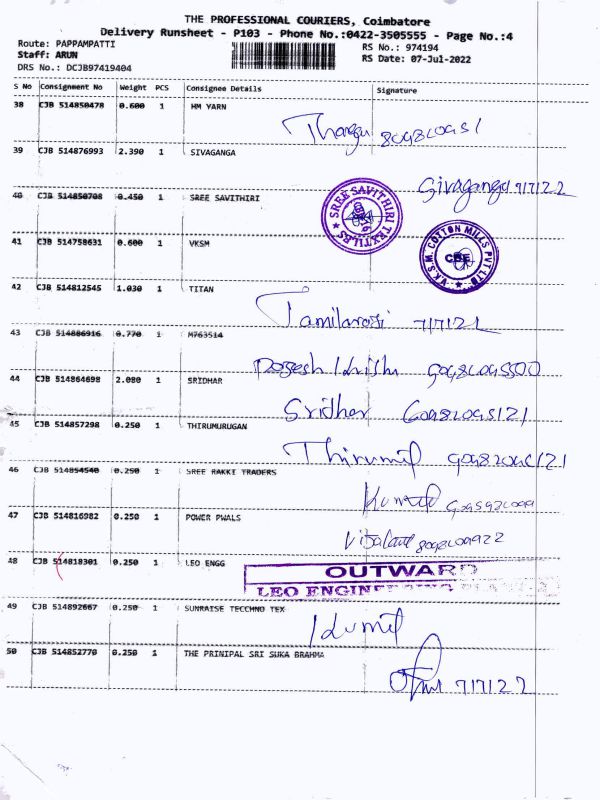 THE PROFESSIONAL COURIERS, Coimbatore
Delivery Runsheet - P103 - Phone No.:0422-3505555 - Page No.:4
Route: PAPPAMPATTI
RS No.: 974194
Staff: ARUN
RS Date: 07-Jul-2022
DRS No.: DCJB97419404
S No Consignment No Weight PCS Consignee Details Signature
38 CJB 514850478 0.600 1 HM YARN
39 CJB 514876993 2.390 1 SIVAGANGA
Sivaganga 7/7/22
40 CJB 514850708 0.450 1 SREE SAVITHIRI
SREE SAVITHIRI TEXTILES
41 CJB 514758631 0.600 1 VKSM
V.K.S.M. COTTON MILLS PVT LTD
CBE
42 CJB 514812545 1.030 1 TITAN
43 CJB 514886916 0.770 1 M763514
44 CJB 514864698 2.080 1 SRIDHAR
Sridhar
45 CJB 514857298 0.250 1 THIRUMURUGAN
46 CJB 514854540 0.250 1 SREE RAKKI TRADERS
47 CJB 514816982 0.250 1 POWER PWALS
48 CJB 514818301 0.250 1 LEO ENGG
OUTWARD
LEO ENGINEERING
49 CJB 514892667 0.250 1 SUNRAISE TECCHNO TEX
50 CJB 514852770 0.250 1 THE PRINIPAL SRI SUKA BRAHMA
7/7/22